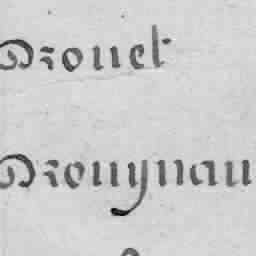 Drouet
Drouynau